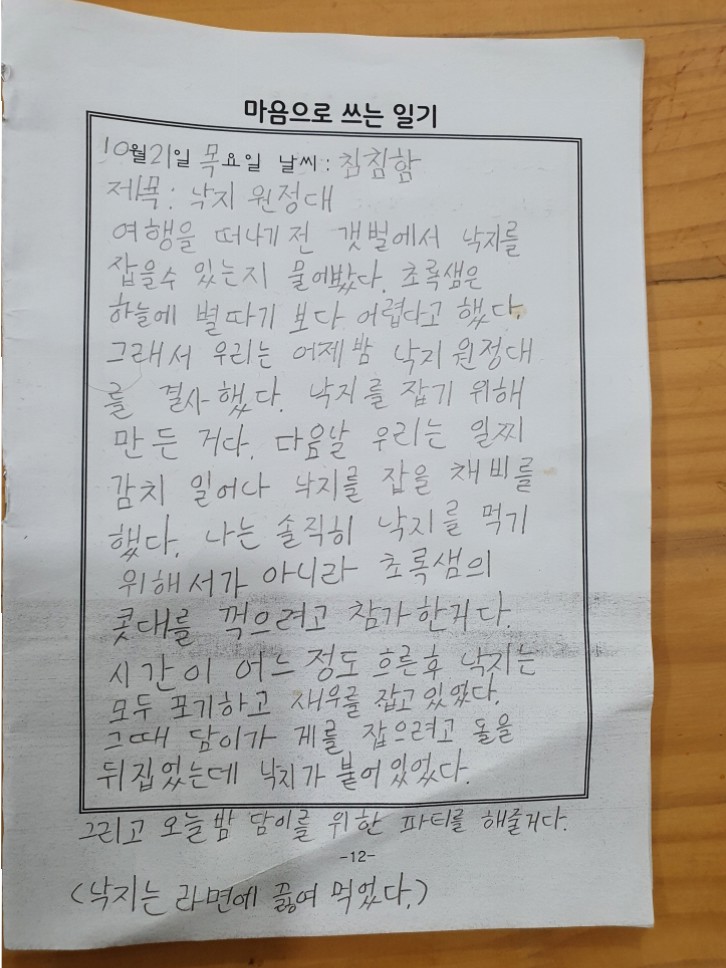 마음으로 쓰는 일기
10월21일 목요일 날씨 : 침침함
제목 : 낙지 원정대
여행을 떠나기 전 갯벌에서 낙지를
잡을수 있는지 물어봤다. 초록샘은
하늘에 별따기 보다 어렵다고 했다.
그래서 우리는 어제밤 낙지 원정대
를 결사했다. 낙지를 잡기 위해
만든 거다. 다음날 우리는 일찌
감치 일어나 낙지를 잡을 채비를
했다. 나는 솔직히 낙지를 먹기
위해서가 아니라 초록샘의
콧대를 꺽으려고 참가한거다.
시간이 어느정도 흐른후 낙지는
모두 포기하고 새우를 잡고있었다.
그때 담이가 게를 잡으려고 돌을
뒤집었는데 낙지가 붙어있었다.
그리고 오늘밤 담이를 위한 파티를 해줄거다.
-12-
(낙지는 라면에 끓여 먹었다.)